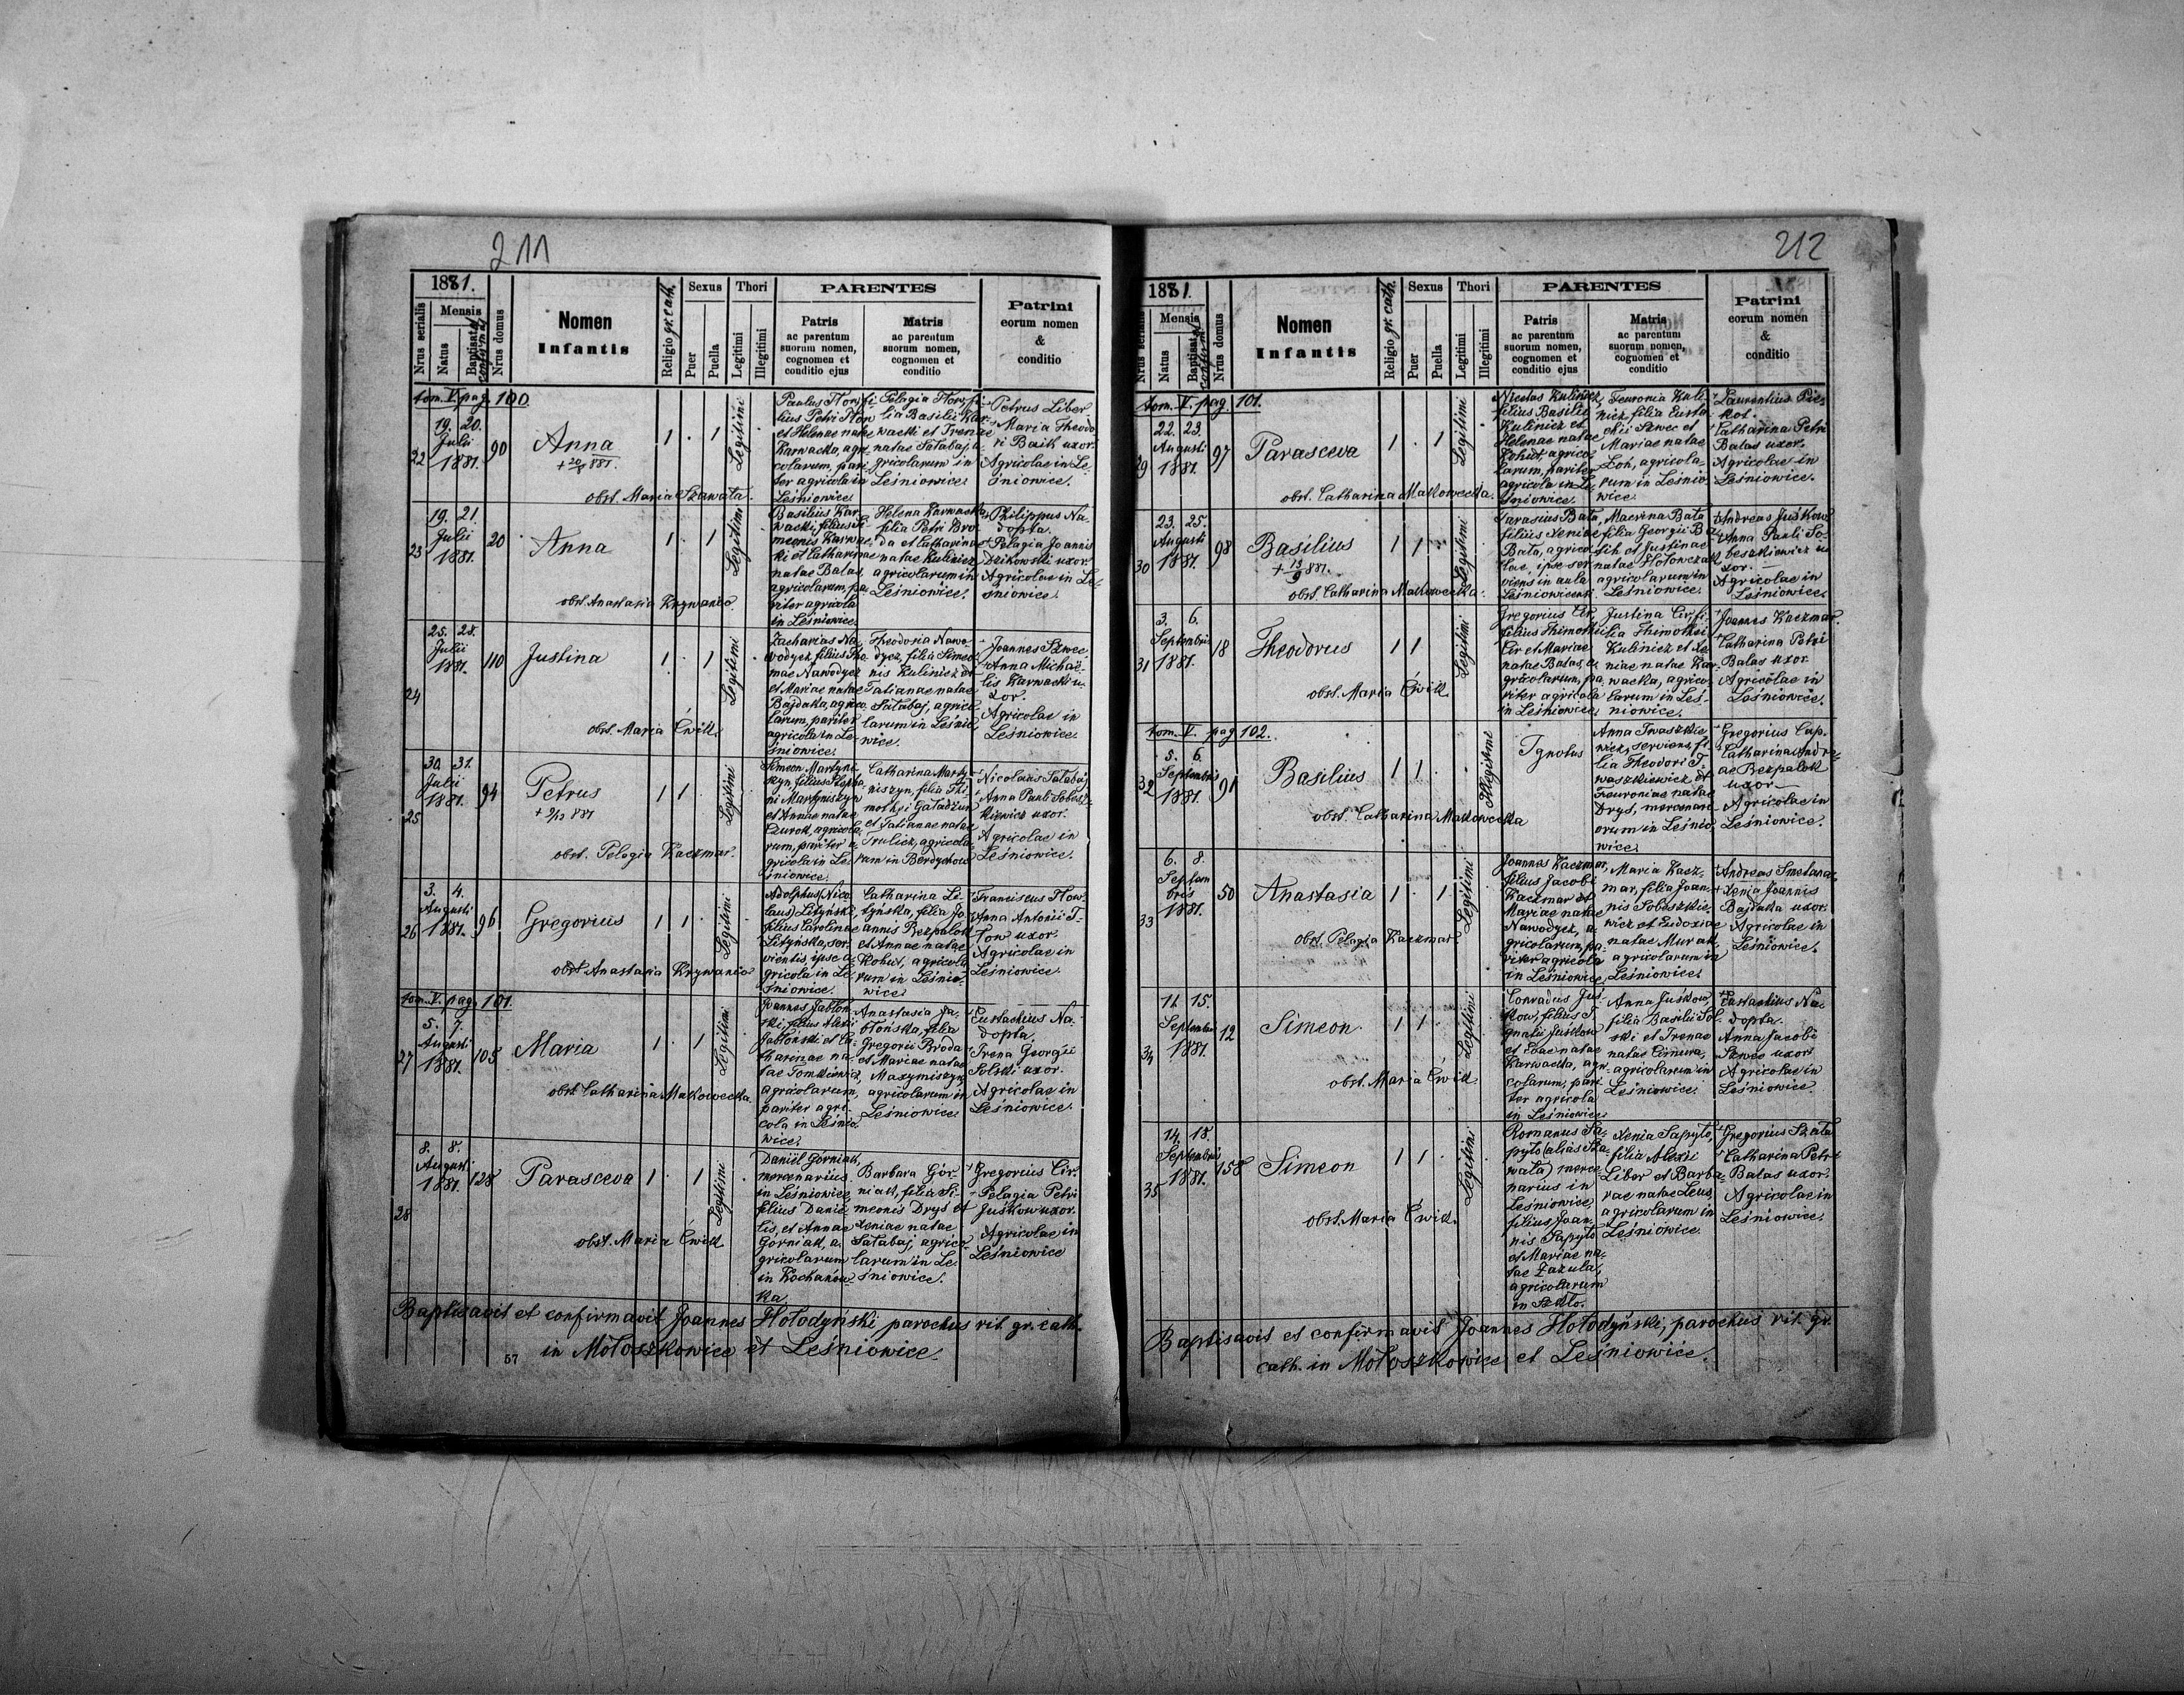 211
1881.
Nrus serialis
Mensis
Natus
Baptisatus
confirmatus
Nrus domus
Nomen
Infantis
Religio gr. cath.
Sexus
Puer
Puella
Thori
Legitimi
Illegitimi
PARENTES
Patris
ac parentum
suorum nomen,
cognomen et
conditio ejus
Matris
ac parentum
suorum nomen,
cognomen et
conditio
Patrini
eorum nomen
&
conditio
tom. V. pag. 100.
22
19. 20.
Julii
1881.
90
Anna
obst. Maria Szawała.
1 . 1
Legitimi
Petri
et Helenae natae
Karwacka, agri-
colarum, pari-
ter agricola in
Leśniowice.
lia Basilii Kar-
wacki et Irenae
natae Sałabaj, a-
gricolarum in
Leśniowice.
Petrus Liber
Maria Theodo-
ri Baik uxor.
Agricolae in Le-
śniowice.
23
19. 21.
Julii
1881.
20
Anna
obst. Anastasia Krywańco
1 . 1
Legitimi
Basilius Kar-
wacki, filius Si-
meonis Karwac-
ki et Catharinae
natae Balas,
agricolarum, pa-
riter agricola
in Leśniowice.
Helena Karwacka,
filia Petri Bro-
da et Catharinae
natae Kulinicz
agricolarum in
Leśniowice.
Philippus Na-
dopta.
Pelagia Joannis
Dzikowski uxor.
Agricolae in Le-
śniowice.
24
25. 28.
Julii
1881.
110
Justina
obst. Maria Ćwik.
1 . 1
Legitimi
Zacharias Na-
wodycz, filius Tho-
mae Nawodycz
et Mariae natae
Bajdaka, agrico-
larum, pariter
agricola in Le-
śniowice.
Theodosia Nawo-
dycz, filia Simeo-
nis Kulinicz et
Tatianae natae
Sałabaj, agrico-
larum in Leśnio-
wice.
Joannes Szwec
Anna Michaë-
lis Karwacki u-
xor.
Agricolae in
Leśniowice.
25
30. 31.
Julii
1881.
94
Petrus
obst. Pelagia Kaczmar.
1 1
Legitimi
Simeon Martyni-
szyn, filius Stepha-
ni Martyniszyn
et Annae natae
Czurok, agricola-
rum, pariter a-
gricola in Le-
śniowice.
Catharina Marty-
niszyn, filia Thi-
mothei Gaładżun
et Tatianae natae
Trulicz, agricola-
rum in Berdychow
Nicolaus Sałabaj
Anna Pauli Sobesz-
kiewicz uxor.
Agricolae in
Leśniowice.
26
3. 4.
Augusti
1881.
96
Gregorius
obst. Anastasia Krywańco
1 1
Legitimi
Adolphus (Nico-
laus) Lityński,
filius Carolinae
Lityńska, ser-
vientis, ipse a-
gricola in Le-
śniowice.
Catharina Li-
tyńska, filia Jo-
annis Bezpalok
et Annae natae
Kohut, agricola-
rum in Leśnio-
wice.
Franciscus How-
Anna Antonii
uxor.
Agricolae in
Leśniowice.
tom. V. pag. 101.
27
5. 7.
Augusti
1881.
105
Maria
obst. Catharina Makowecka.
1 . 1
Legitimi
Joannes Jabłoń-
ski, filius Alexii
Jabłoński et Ca-
tharinae na-
tae Tomkiewicz,
agricolarum,
pariter agri-
cola in Leśnio-
wice.
Anastasia Ja-
błońska, filia
Gregorii Broda
et Mariae natae
Maxymiszyn,
agricolarum in
Leśniowice.
Eustachius Na-
dopta.
Irena Georgii
Solski uxor.
Agricolae in
Leśniowice.
28
8. 8.
Augusti
1881.
128
Parasceva
obst. Maria Ćwik.
1 . 1
Legitimi
Daniël Górniak,
mercenarius
in Leśniowice,
filius Danië-
lis, et Annae
Górniak, a-
gricolarum
in Kochanów-
ka.
Barbara Gór-
niak, filia Si-
meonis Drys et
Xeniae natae
Sałabaj, agrico-
larum in Le-
śniowice.
Gregorius Cir.
Pelagia Petri
Juśkow uxor.
Agricolae in
Leśniowice
Baptisavit et confirmavit Joannes Hołodyński parochus rit. gr. cath.
57 in Mołoszkowice et Leśniowice.
212
1881.
Nrus serialis
Mensis
Natus
Baptisatus
confirmatus
Nrus domus
Nomen
Infantis
Religio gr. cath.
Sexus
Puer
Puella
Thori
Legitimi
Illegitimi
PARENTES
Patris
ac parentum
suorum nomen,
cognomen et
conditio ejus
Matris
ac parentum
suorum nomen,
cognomen et
conditio
Patrini
eorum nomen
&
conditio
tom. V. pag. 101.
29
22. 23.
Augusti
1881.
97
Parasceva
obst. Catharina Makowecka.
1 . 1
Legitimi
Nicolas Kulinicz,
filius Basilii
Kulinicz et
Helenae natae
Kohut, agrico-
larum, pariter
agricola in Le-
śniowice.
Feuronia Kuli-
nicz, filia Eusta-
chii Szwec et
Mariae natae
Łoh, agricola-
rum in Leśnio-
wice.
Laurentius Pies-
kot.
Catharina Petri
Balas uxor.
Agricolae in
Leśniowice.
30
23. 25.
Augusti
1881.
98
Basilius
+ 13/9 881.
obst. Catharina Makowecka.
1 1
Legitimi
Tarasius Bata,
filius Xeniae
Bata, agrico-
lae, ipse ser-
viens in aula
Leśniowicensi.
Macrina Bata
filia Georgii
et Justinae
natae Hołowczak
agricolarum in
Leśniowice.
Andreas Juśkow
Anna Pauli So-
beszkiewicz u-
xor.
Agricolae in
Leśniowice.
31
3. 6.
Septembris
1881.
18
Theodorus
obst. Maria Ćwik.
1 1
Legitimi
Gregorius Cir,
filius Thimothei
Cir et Mariae
natae Balas, a-
gricolarum, pa-
riter agricola
in Leśniowice.
Justina Cir, fi-
lia Thimothei
Kulinicz et Xe-
niae natae Kar-
wacka, agrico-
larum in Leś-
niowice.
Joannes Kaczmar.
Catharina Petri
Balas uxor.
Agricolae in
Leśniowice.
tom. V. pag 102.
32
5. 6.
Septembris
1881.
91
Basilius
obst. Catharina Makowecka
1 1
Illegitimi
Ignotus
Anna Iwaszkie-
wicz, serviens, fi-
lia Theodori I-
waszkiewicz et
Feuroniae natae
Drys, mercenari-
orum in Leśnio-
wice.
Gregorius Cap.
Catharina Andre-
ae Bezpalok
uxor
Agricolae in
Leśniowice.
33
6. 8.
Septem
bris
1881.
50
Anastasia
obst. Pelagia Kaczmar
1 . 1
Legitimi
Joannes Kaczmar,
filius Jacobi
Kaczmar et
Mariae natae
Nawodycz, a-
gricolarum, pa-
riter agricola
in Leśniowice.
Maria Kacz-
mar, filia Joan-
nis Sobeszkie-
wicz et Eudoxiae
natae Murak,
agricolarum in
Leśniowice.
Andreas Smetana
Xenia Joannis
Bajdaka uxor.
Agricolae in
Leśniowice.
34
15.
Septembris
1881.
12
Simeon
obst. Maria Ćwik.
1 1
Legitimi
Conradus Juś-
kow, filius I-
gnatii Juśkow
et Evae natae
Karwacka, agri-
colarum, pari-
ter agricola
in Leśniowice.
Anna Juśkow,
filia Basilii Sol-
ski et Irenae
natae Cimura,
agricolarum in
Leśniowice.
Eustachius Na-
dopta.
Anna Jacobi
Szwec uxor
Agricolae in
Leśniowice.
35
14. 18.
Septembris
1881.
158
Simeon
obst. Maria Ćwik.
1 1
Legitimi
Romanus Sa-
pyto (alias Sza-
wała) merce-
narius in
Leśniowice,
filius Joan-
nis Sapyto
et Mariae na-
tae Zakula,
agricolarum
in Szkło.
Xenia Sapyto,
filia Alexii
Liber et Barba-
rae natae Leus,
agricolarum in
Leśniowice.
Gregorius Szała
Catharina Petri
Balas uxor.
Agricolae in
Leśniowice.
Baptisavit et confirmavit Joannes Hołodyński, parochus rit. gr.
cath. in Mołoszkowice et Leśniowice.